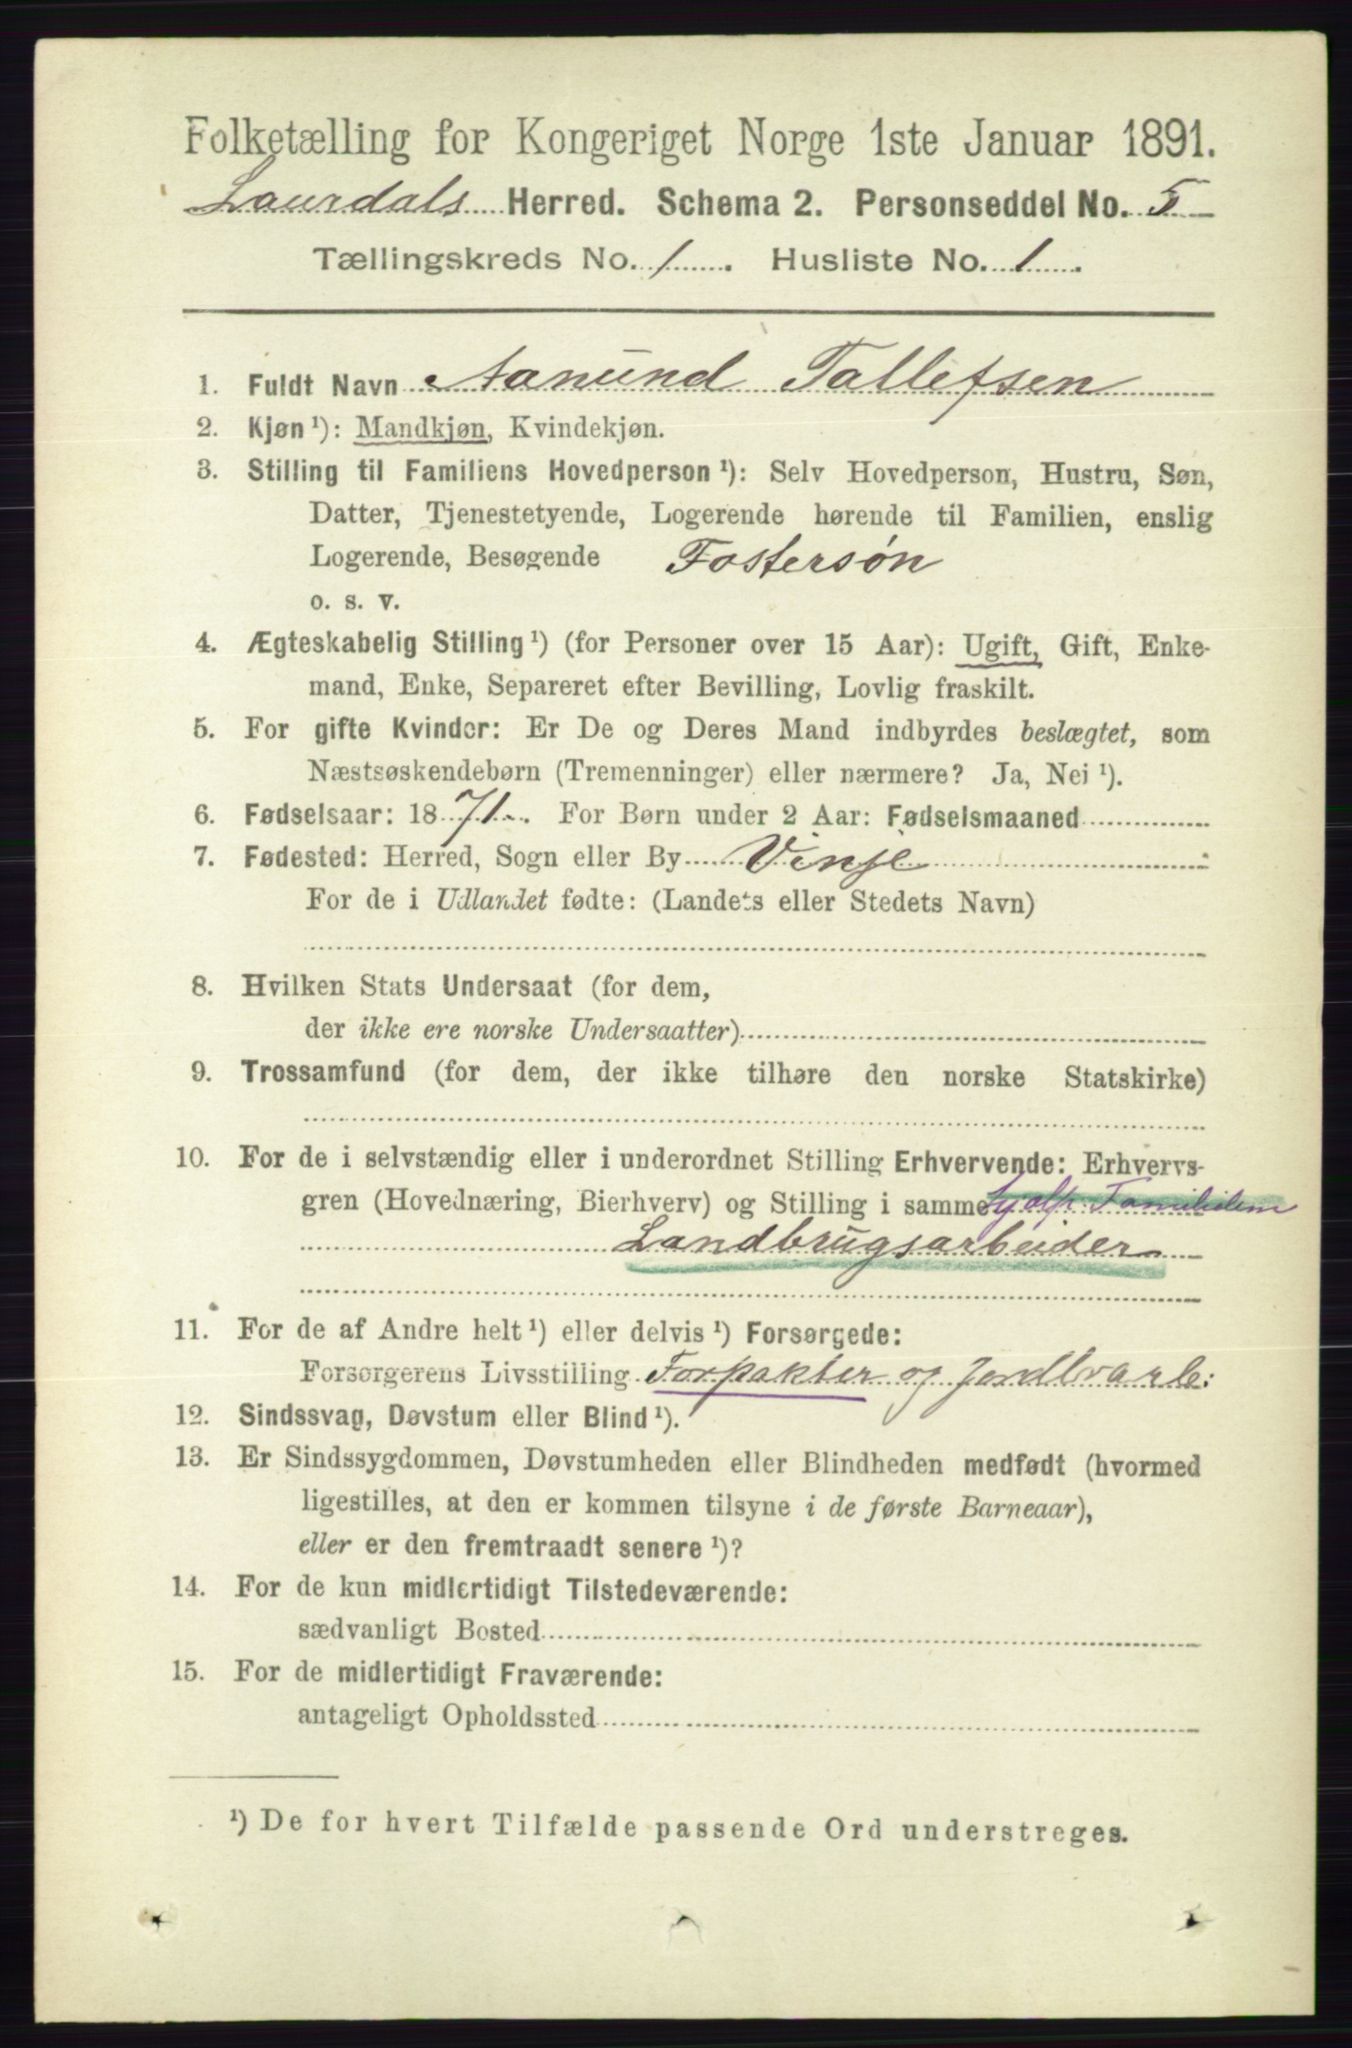 Folketælling for Kongeriget Norge 1ste Januar 1891.
Laurdals Herred. Schema 2. Personseddel No. 5
Tællingskreds No. 1. Husliste No. 1.
1. Fuldt Navn Aanund Tallefsen
2. Kjøn ¹): Mandkjøn, Kvindekjøn.
3. Stilling til Familiens Hovedperson ¹): Selv Hovedperson, Hustru, Søn,
Datter, Tjenestetyende, Logerende hørende til Familien, enslig
Logerende, Besøgende Fostersøn
o. s. v.
4. Ægteskabelig Stilling ¹) (for Personer over 15 Aar): Ugift, Gift, Enke-
mand, Enke, Separeret efter Bevilling, Lovlig fraskilt.
5. For gifte Kvinder: Er De og Deres Mand indbyrdes beslægtet, som
Næstsøskendebørn (Tremenninger) eller nærmere? Ja, Nei ¹).
6. Fødselsaar: 1871. For Børn under 2 Aar: Fødselsmaaned
7. Fødested: Herred, Sogn eller By Vinje
For de i Udlandet fødte: (Landets eller Stedets Navn)
8. Hvilken Stats Undersaat (for dem,
der ikke ere norske Undersaatter)
9. Trossamfund (for dem, der ikke tilhøre den norske Statskirke)
10. For de i selvstændig eller i underordnet Stilling Erhvervende: Erhvervs-
gren (Hovednæring, Bierhverv) og Stilling i samme
Landbrugsarbeider
11. For de af Andre helt ¹) eller delvis ¹) Forsørgede:
Forsørgerens Livsstilling Forpakter og
12. Sindssvag, Døvstum eller Blind ¹).
13. Er Sindssygdommen, Døvstumheden eller Blindheden medfødt (hvormed
ligestilles, at den er kommen tilsyne i de første Barneaar),
eller er den fremtraadt senere ¹)?
14. For de kun midlertidigt Tilstedeværende:
sædvanligt Bosted
15. For de midlertidigt Fraværende:
antageligt Opholdssted
¹) De for hvert Tilfælde passende Ord understreges.